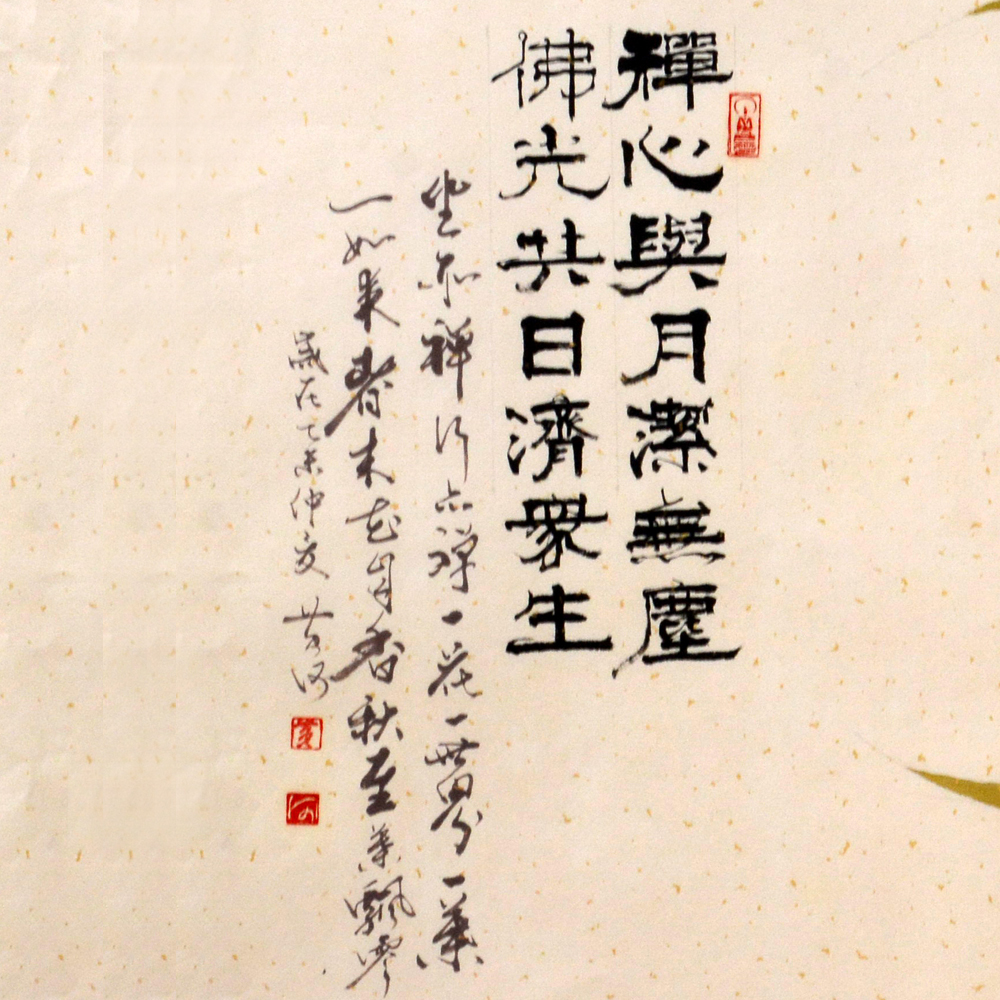 禪心與月潔無塵
佛光共日濟眾生
坐亦禅行亦禪一花一世界一葉
一如来春来花自香秋至葉飄零
歲在乙未仲夏 黄河